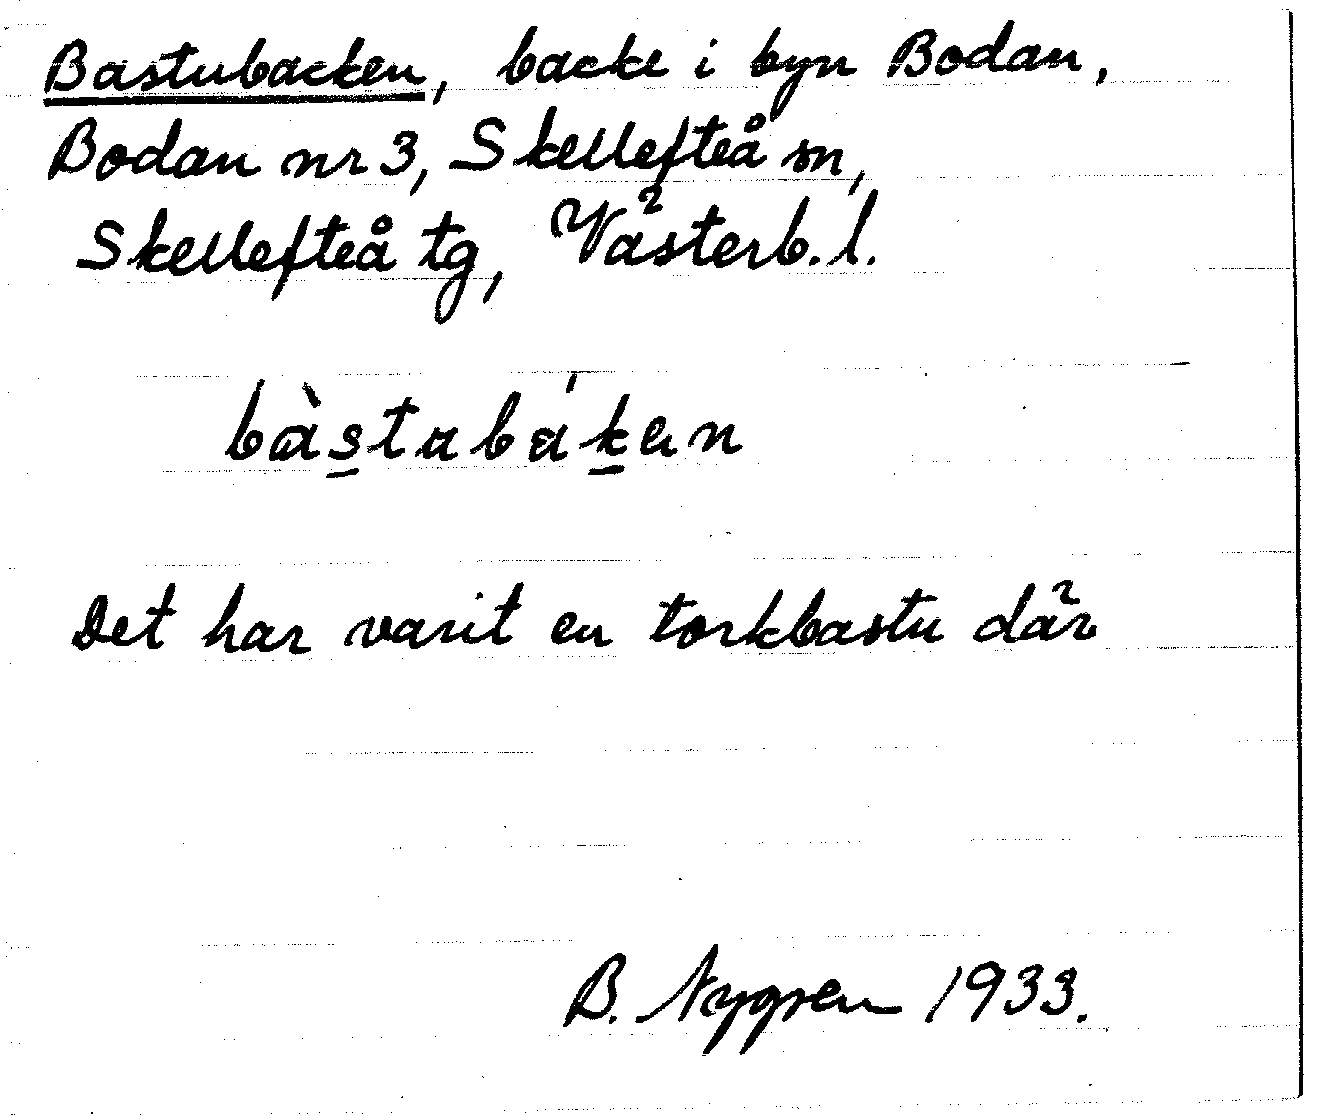 Bastubacken, backe i byn Bodan,
Bodan nr 3, Skellefteå sn,
Skellefteå tg, Västerb. l.
bàs̲tabák̲en
Det har varit en torkbastu där
B. Nygren 1933.